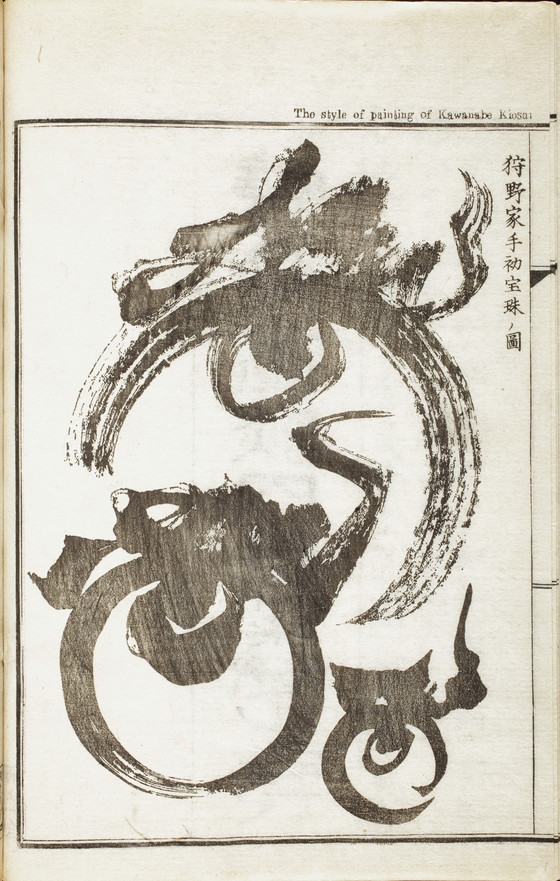 The style of painting of Kawanabe Kiosui
狩野家手初宝珠ノ圖